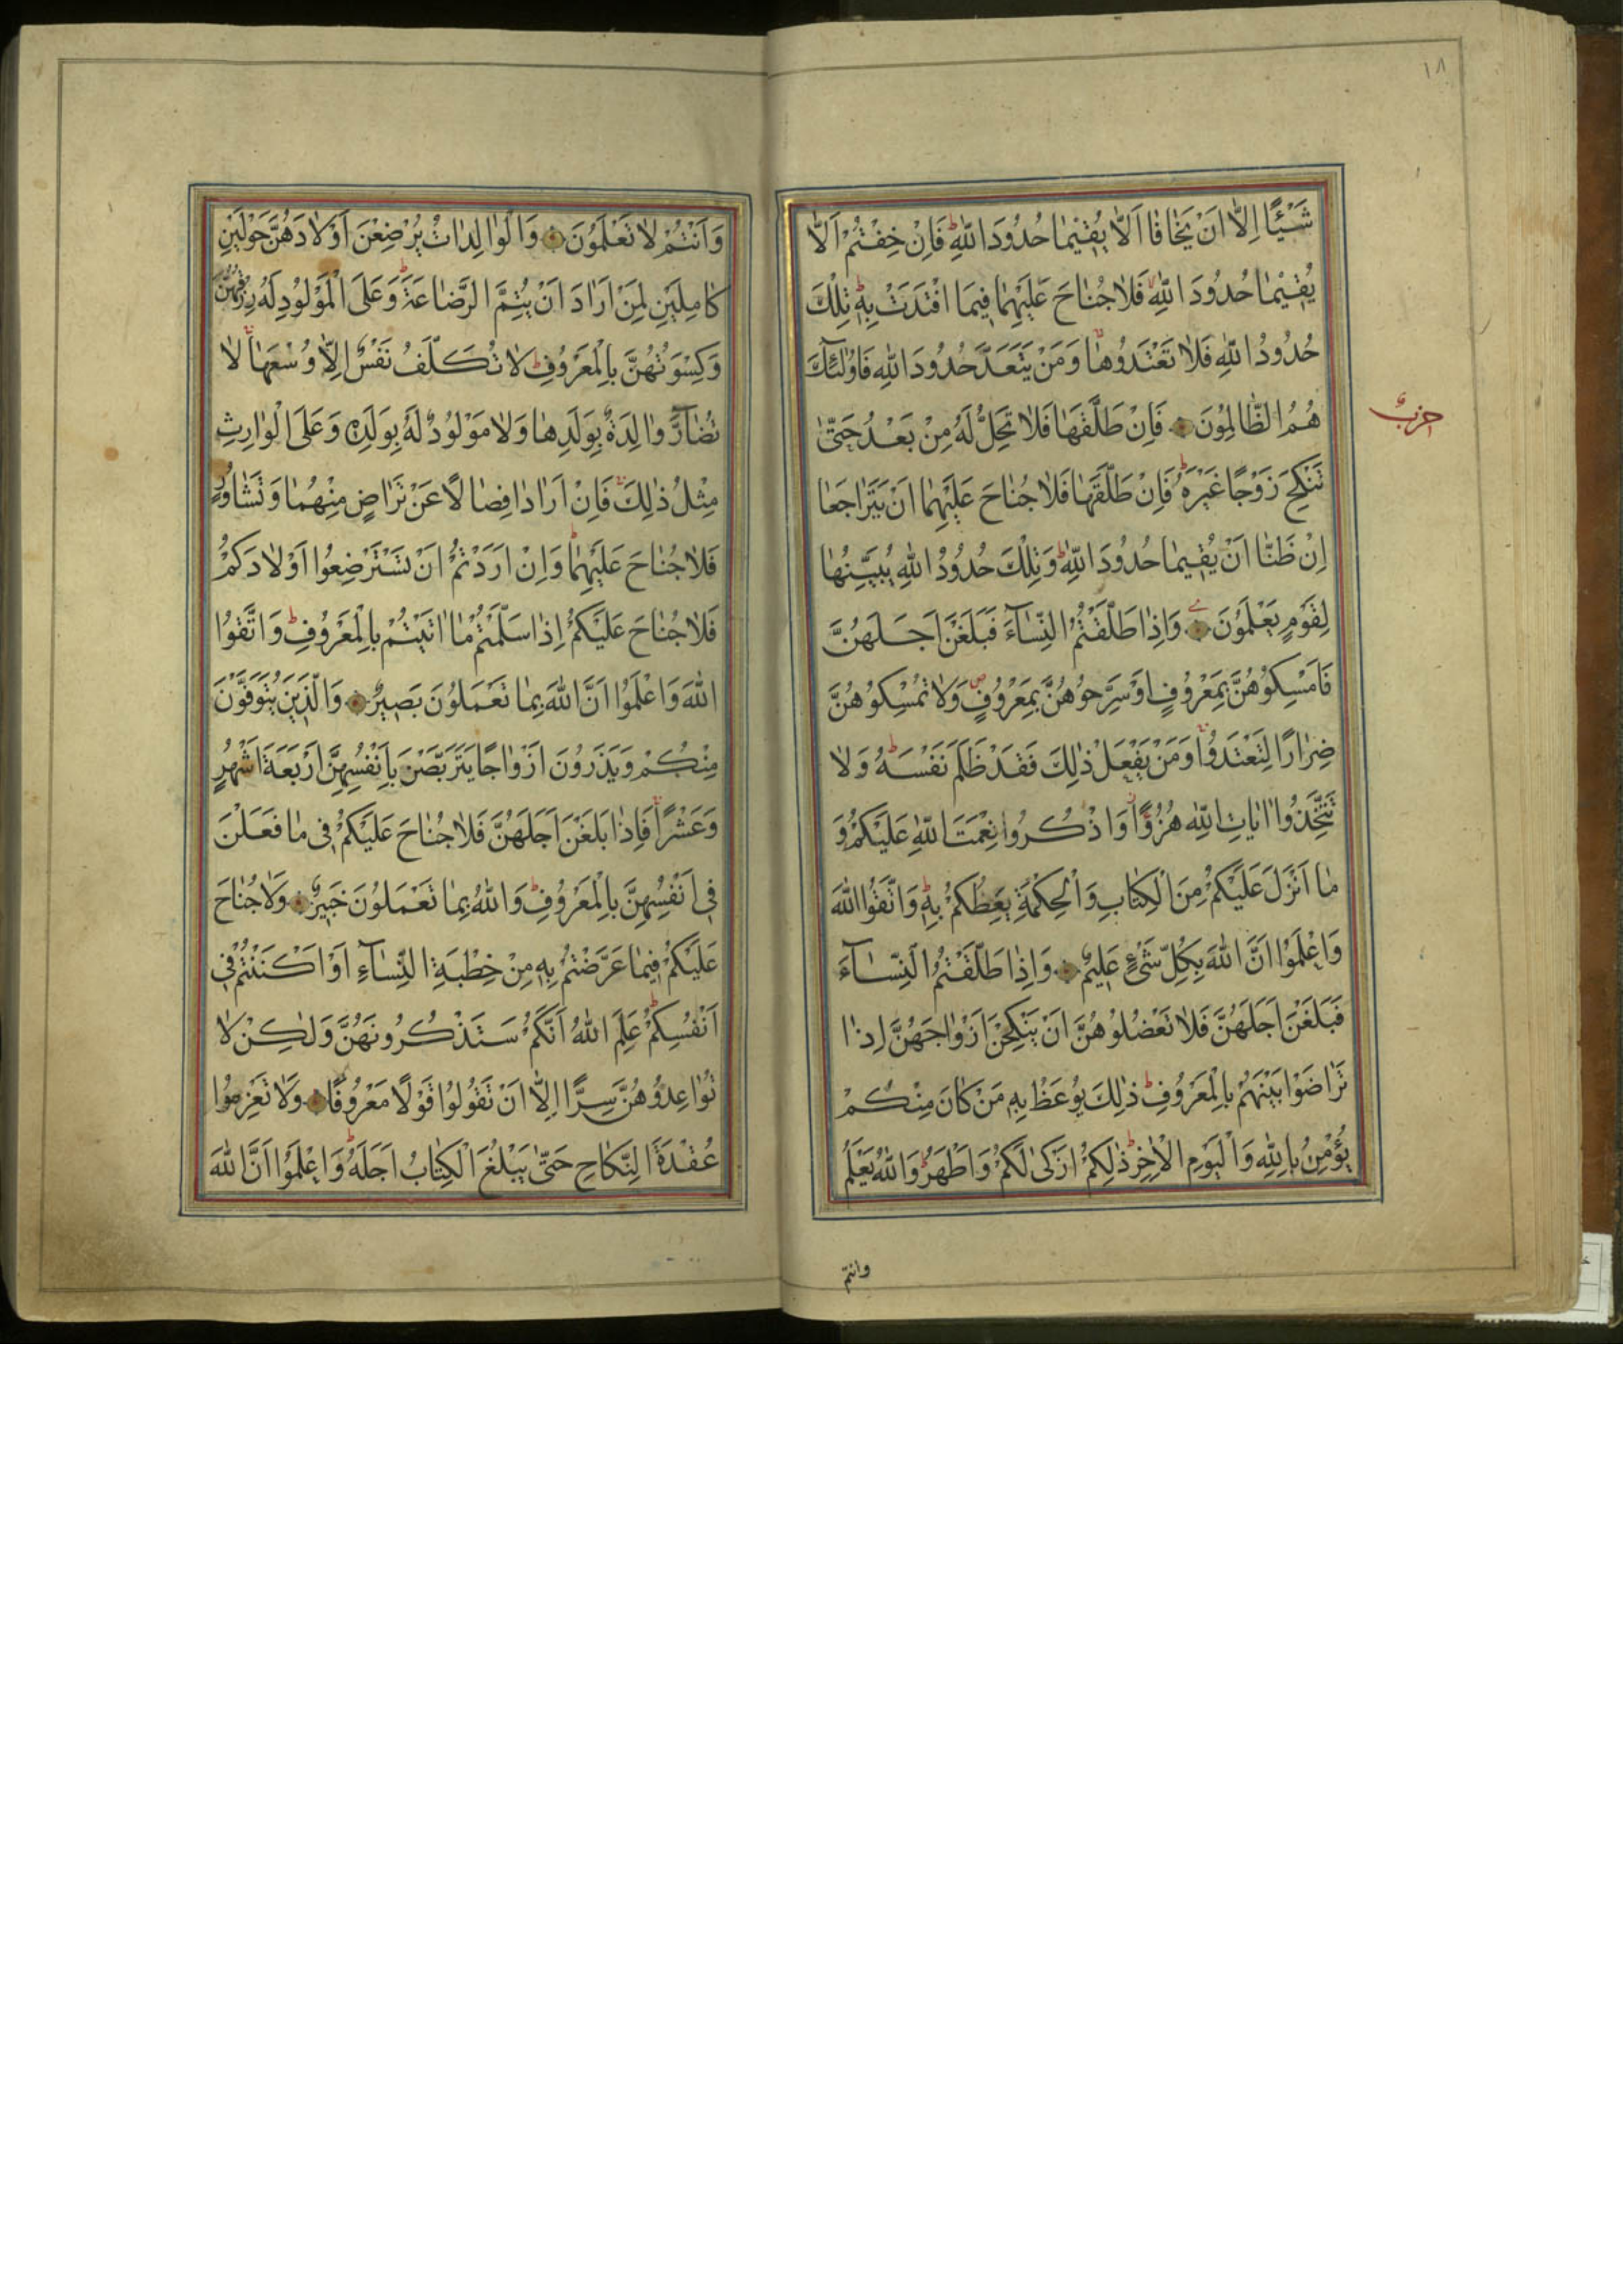 ١٨
شَيْئًا اِلَّا اَنْ يَخَافَا اَلَّا يُقِيْمَا حُدُوْدَ اللّٰهِ ط فَاِنْ خِفْتُمْ اَلَّا
يُقِيْمَا حُدُوْدَ اللّٰهِ فَلَا جُنَاحَ عَلَيْهِمَا فِيمَا افْتَدَتْ بِهٖ ط تِلْكَ
حُدُوْدُ اللّٰهِ فَلَا تَعْتَدُوْهَا وَمَنْ يَتَعَدَّ حُدُوْدَ اللّٰهِ فَاُولٰئِكَ
هُمُ الظَّالِمُوْنَ فَاِنْ طَلَّقَهَا فَلَا تَحِلُّ لَهُ مِنْ بَعْدُ حَتّٰى
حزب
تَنْكِحَ زَوْجًا غَيْرَهُ ط فَاِنْ طَلَّقَهَا فَلَا جُنَاحَ عَلَيْهِمَا اَنْ يَتَرَاجَعَا
اِنْ ظَنَّا اَنْ يُقِيمَا حُدُوْدَ اللّٰهِ ط وَتِلْكَ حُدُوْدُ اللّٰهِ يُبَيِّنُهَا
لِقَوْمٍ يَعْلَمُوْنَ وَاِذَا طَلَّقْتُمُ النِّسَآءَ فَبَلَغْنَ اَجَلَهُنَّ
فَاَمْسِكُوْهُنَّ بِمَعْرُوْفٍ اَوْ سَرِّحُوْهُنَّ بِمَعْرُوْفٍ ص وَلَا تُمْسِكُوْهُنَّ
ضِرَارًا لِتَعْتَدُوْا وَمَنْ يَفْعَلْ ذٰلِكَ فَقَدْ ظَلَمَ نَفْسَهُ ط وَلَا
تَتَّخِذُوْا اٰيَاتِ اللّٰهِ هُزُوًا وَاذْكُرُوا نِعْمَتَ اللّٰهِ عَلَيْكُمْ وَ
مَا اَنْزَلَ عَلَيْكُمْ مِنَ الْكِتَابِ وَالْحِكْمَةِ يَعِظُكُمْ بِهٖ ط وَاتَّقُوا اللّٰهَ
وَاعْلَمُوْا اَنَّ اللّٰهَ بِكُلِّ شَىْءٍ عَلِيمٌ وَاِذَا طَلَّقْتُمُ النِّسَآءَ
فَبَلَغْنَ اَجَلَهُنَّ فَلَا تَعْضُلُوْهُنَّ اَنْ يَنْكِحْنَ اَزْوَاجَهُنَّ اِذَا
تَرَاضَوْا بَيْنَهُمْ بِالْمَعْرُوْفِ ط ذٰلِكَ يُوْعَظُ بِهٖ مَنْ كَانَ مِنْكُمْ
يُؤْمِنُ بِاللّٰهِ وَالْيَوْمِ الْاٰخِرِ ط ذٰلِكُمْ اَزْكٰى لَكُمْ وَاَطْهَرُ ط وَاللّٰهُ يَعْلَمُ
وانتم
وَاَنْتُمْ لَا تَعْلَمُوْنَ وَالْوَالِدَاتُ يُرْضِعْنَ اَوْلَادَهُنَّ حَوْلَيْنِ
كَامِلَيْنِ لِمَنْ اَرَادَ اَنْ يُتِمَّ الرَّضَاعَةَ ط وَعَلَى الْمَوْلُوْدِ لَهُ رِزْقُهُنَّ
وَكِسْوَتُهُنَّ بِالْمَعْرُوْفِ ط لَا تُكَلَّفُ نَفْسٌ اِلَّا وُسْعَهَا لَا
تُضَآرَّ وَالِدَةٌ بِوَلَدِهَا وَلَا مَوْلُوْدٌ لَهُ بِوَلَدِهٖ وَعَلَى الْوَارِثِ
مِثْلُ ذٰلِكَ فَاِنْ اَرَادَا فِصَالًا عَنْ تَرَاضٍ مِنْهُمَا وَتَشَاوُرٍ
فَلَا جُنَاحَ عَلَيْهِمَا ط وَاِنْ اَرَدْتُمْ اَنْ تَسْتَرْضِعُوا اَوْلَادَكُمْ
فَلَا جُنَاحَ عَلَيْكُمْ اِذَا سَلَّمْتُمْ مَا اٰتَيْتُمْ بِالْمَعْرُوْفِ ط وَاتَّقُوا
اللّٰهَ وَاعْلَمُوْا اَنَّ اللّٰهَ بِمَا تَعْمَلُوْنَ بَصِيْرٌ وَالَّذِيْنَ يُتَوَفَّوْنَ
مِنْكُمْ وَيَذَرُوْنَ اَزْوَاجًا يَتَرَبَّصْنَ بِاَنْفُسِهِنَّ اَرْبَعَةَ اَشْهُرٍ
وَعَشْرًا فَاِذَا بَلَغْنَ اَجَلَهُنَّ فَلَا جُنَاحَ عَلَيْكُمْ فِى مَا فَعَلْنَ
فِى اَنْفُسِهِنَّ بِالْمَعْرُوْفِ ط وَاللّٰهُ بِمَا تَعْمَلُوْنَ خَبِيْرٌ وَلَا جُنَاحَ
عَلَيْكُمْ فِيمَا عَرَّضْتُمْ بِهٖ مِنْ خِطْبَةِ النِّسَآءِ اَوْ اَكْنَنْتُمْ فِى
اَنْفُسِكُمْ ط عَلِمَ اللّٰهُ اَنَّكُمْ سَتَذْكُرُوْنَهُنَّ وَلٰكِنْ لَا
تُوَاعِدُوْهُنَّ سِرًّا اِلَّا اَنْ تَقُوْلُوْا قَوْلًا مَعْرُوْفًا وَلَا تَعْزِمُوْا
عُقْدَةَ النِّكَاحِ حَتّٰى يَبْلُغَ الْكِتَابُ اَجَلَهُ ط وَاعْلَمُوْا اَنَّ اللّٰهَ